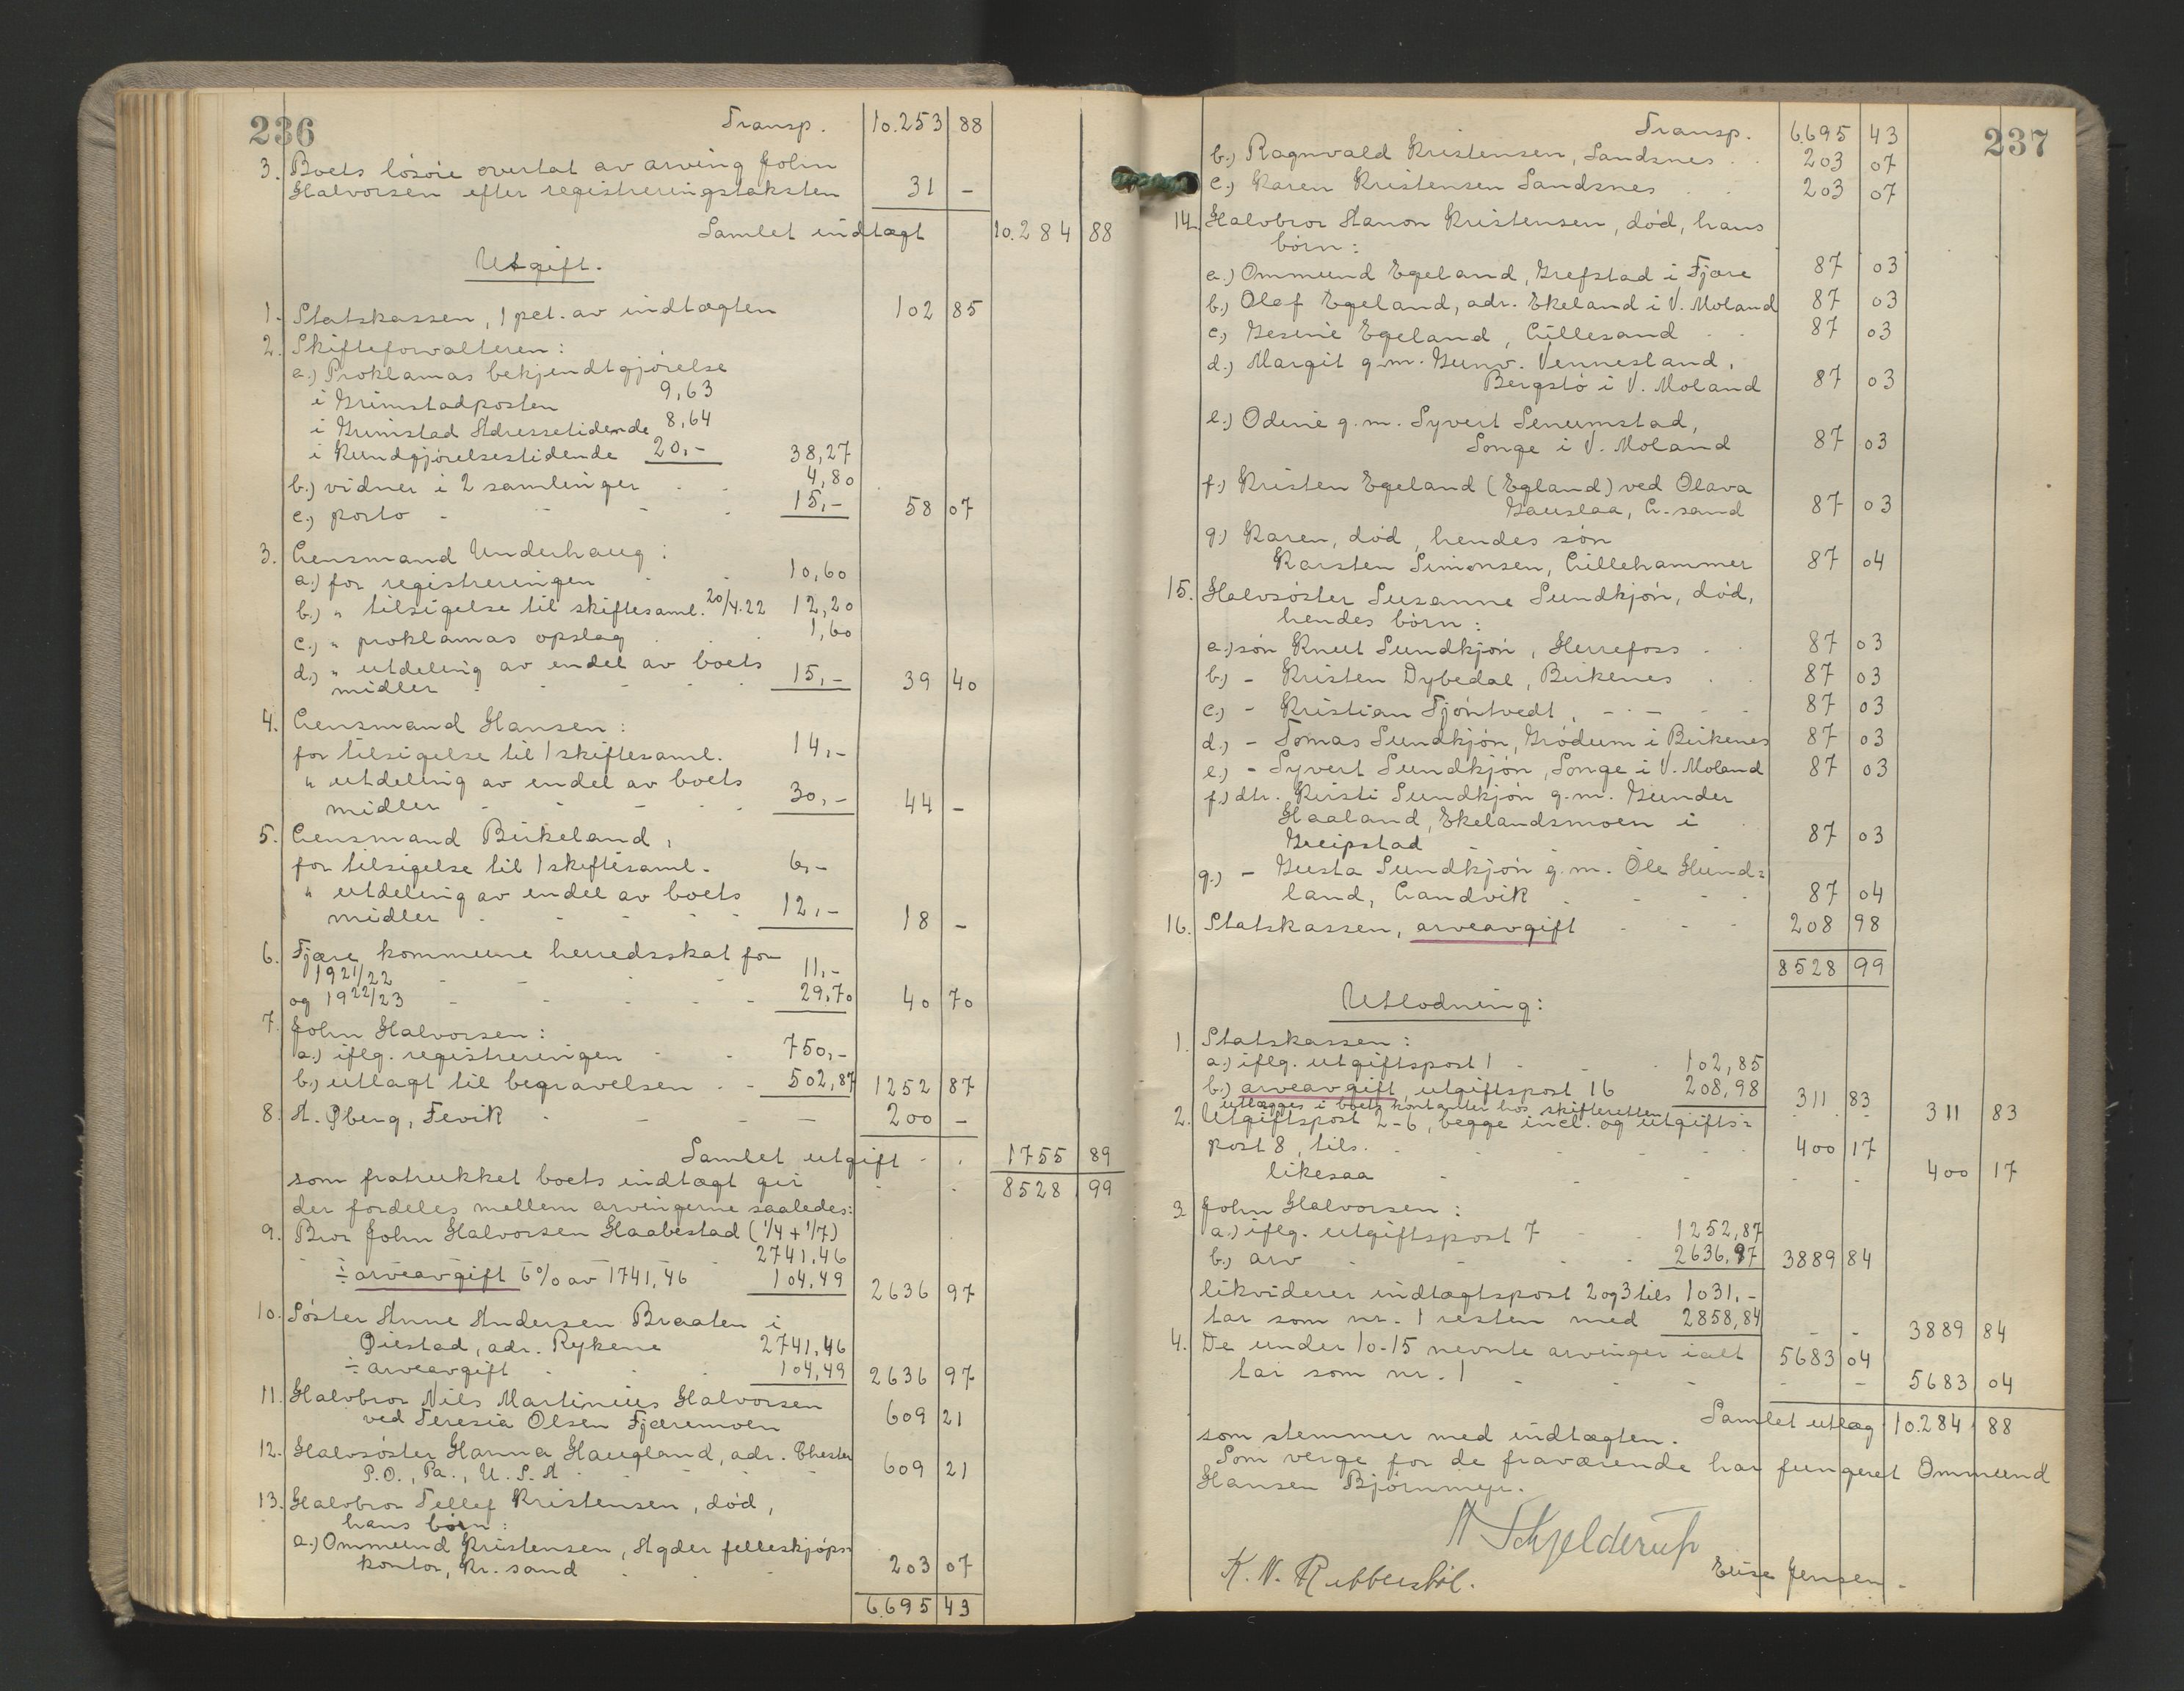 236
Transp. 10.253 88
3. Boets løsøie overtat av arving John
Halvorsen efter registreringstaksten 31 -
Samlet indtægt 10.284 88
Utgift.
1. Statskassen, 1 pct. av indtægten 102 85
2. Skifteforvalteren:
a.) Proklamas bekjendtgjørelse
i Grimstadposten 9,63
i Grimstad Adressetidende 8,64
i Kundgjørelsestidende 20,- 38,27
b.) vidner i 2 samlinger 4,80
c.) porto 15,- 58 07
3. Lensmand Underhaug:
a.) for registreringen 10,60
b.) " tilsigelse til skiftesaml. 20/4.22 12,20
c.) " proklamas opslag 1,60
d.) " utdeling av endel av boets
midler 15,- 39 40
4. Lensmand Hansen:
for tilsigelse til 1 skiftesaml. 14,-
" utdeling av endel av boets
midler 30,- 44 -
5. Lensmand Birkeland,
for tilsigelse til 1 skiftesaml. 6,-
" utdeling av endel av boets
midler 12,- 18 -
6. Fjære kommune herredsskat for
1921/22 11,-
og 1922/23 29,70 40 70
7. John Halvorsen:
a.) iflg. registreringen 750,-
b.) utlagt til begravelsen 502,87 1252 87
8. A. Øberg, Fevik 200 -
Samlet utgift 1755 89
som fratrukket boets indtægt gir 8528 99
der fordeles mellem arvingerne saaledes:
9. Bror John Halvorsen Haabestad (1/4 + 1/7)
2741,46
÷ arveavgift 6% av 1741,46 104,49 2636 97
10. Søster Anne Andersen Braaten i
Øiestad, adr. Rykene 2741,46
÷ arveavgift 104,49 2636 97
11. Halvbror Nils Martinius Halvorsen
ved Teresia Olsen Fjæremoen 609 21
12. Halvsøster Hanna Haugland, adr. Chester
P.O., Pa., U.S.A. 609 21
13. Halvbror Tellef Kristensen, død,
hans børn:
a.) Ommund Kristensen, Agder felleskjøps=
kontor, Kr.sand 203 07
6.695 43
237
Transp. 6.695 43
b.) Ragnvald Kristensen, Sandsnes 203 07
c.) Karen Kristensen Sandsnes 203 07
14. Halvbror Hanon Kristensen, død, hans
børn:
a.) Ommund Egeland, Grefstad i Fjære 87 03
b.) Olaf Egeland, adr. Ekeland i V. Moland 87 03
c.) Gesine Egeland, Lillesand 87 03
d.) Margit g.m. Gunv. Vennesland,
Bergstø i V. Moland 87 03
e.) Odine g.m. Syvert Senumstad,
Songe i V. Moland 87 03
f.) Kristen Egeland (Egland) ved Olava
Gauslaa, L.sand 87 03
g.) Karen, død, hendes søn
Karsten Simonsen, Lillehammer 87 04
15. Halvsøster Susanne Sundkjøn, død,
hendes børn:
a.) søn Knut Sundkjøn, Herrefoss 87 03
b.) - Kristen Dybedal, Birkenes 87 03
c.) - Kristian Tjøntvedt, - 87 03
d.) - Tomas Sundkjøn, Grødum i Birkenes 87 03
e.) - Syvert Sundkjøn, Songe i V. Moland 87 03
f.) dtr. Kirsti Sundkjøn g.m. Gunder
Haaland, Ekelandsmoen i
Greipstad 87 03
g.) - Gusta Sundkjøn g.m. Ole Hund=
land, Landvik 87 04
16. Statskassen, arveavgift 208 98
8528 99
Utlodning:
1. Statskassen:
a.) iflg. utgiftspost 1 102,85
b.) arveavgift, utgiftspost 16 208,98 311 83
utlægges i boets kontanter hos skifteretten 311 83
2. Utgiftspost 2-6, begge incl. og utgifts=
post 8, tils. 400 17
likesaa 400 17
3. John Halvorsen:
a.) iflg. utgiftspost 7 1252,87
b.) arv 2636,97 3889 84
likviderer indtægtspost 2 og 3 tils 1031,-
tar som nr. 1 resten med 2858,84 3889 84
4. De under 10-15 nevnte arvinger ialt 5683 04
tar som nr. 1 5683 04
Samlet utlæg 10.284 88
som stemmer med indtægten.
Som verge for de fraværende har fungeret Ommund
Hansen Bjørnmyr.
A Schjelderup
K. N. Rubbershöl. Elise Jensen.